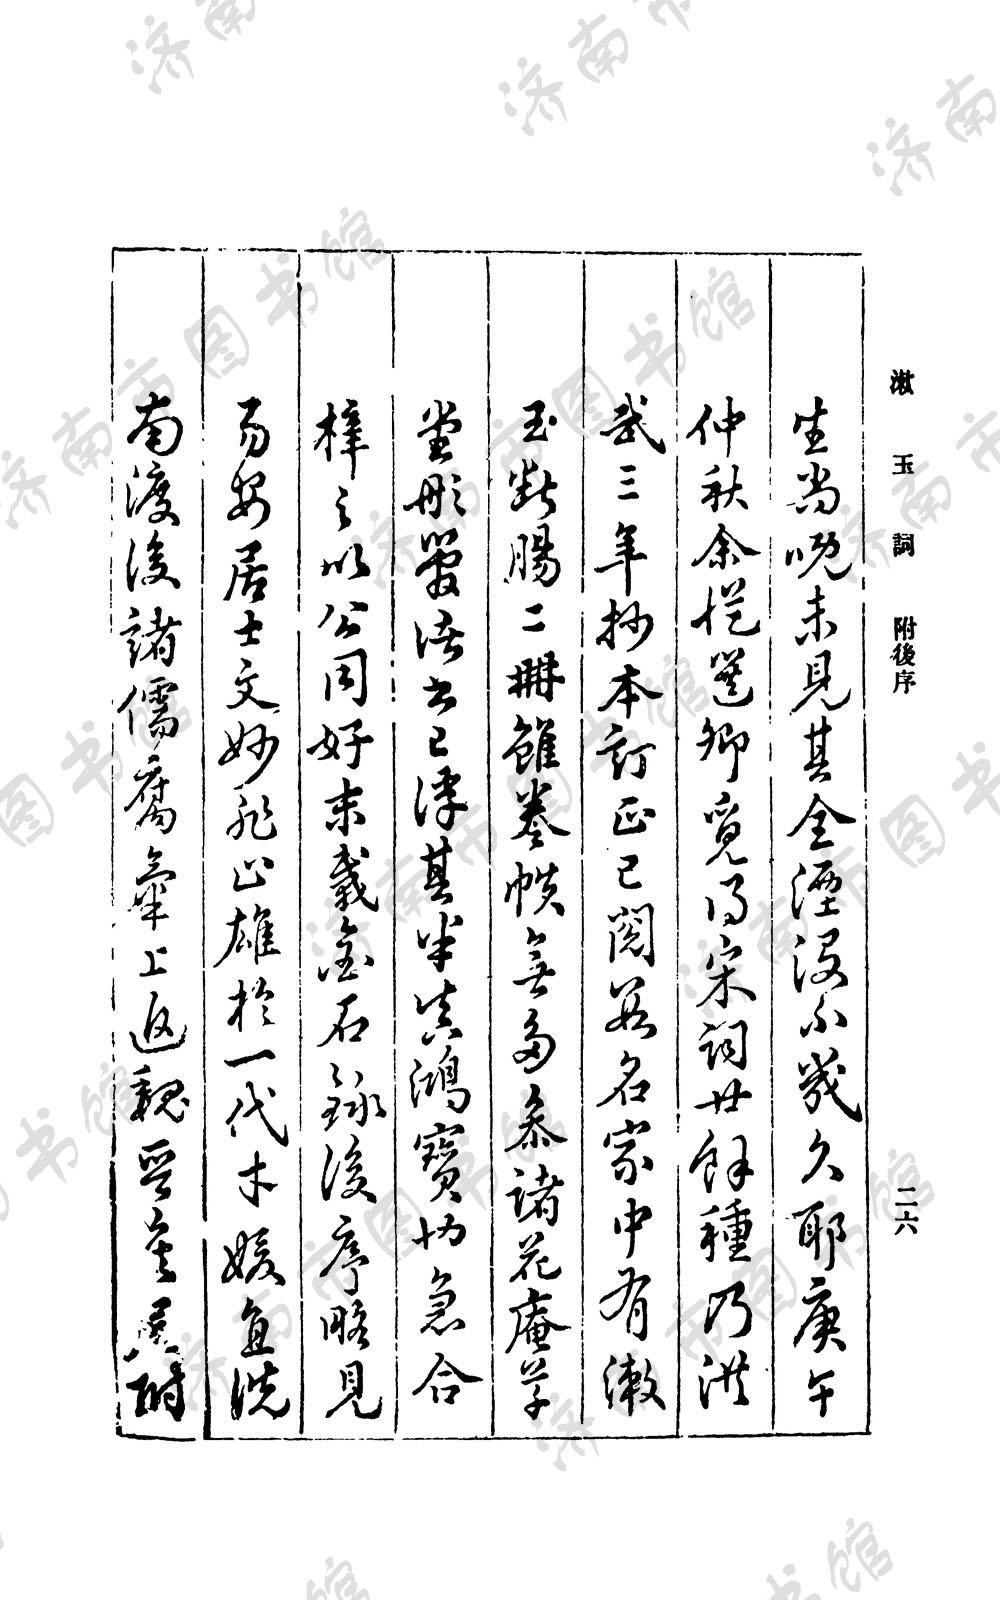 漱玉詞　附後序　二六
生尚晚未見其全湮没不幾久耶庚午
仲秋余從選卿覓得宋詞廿餘種乃洪
武三年抄本訂正已閱數名家中有漱
玉斷腸二冊雖卷帙無多參諸花庵草
堂彤管諸書已浮其半真鴻寶也急合
梓之以公同好末載金石錄後序略見
易安居士文妙非止雄於一代才媛直洗
南渡後諸儒腐氣上返魏晉矣